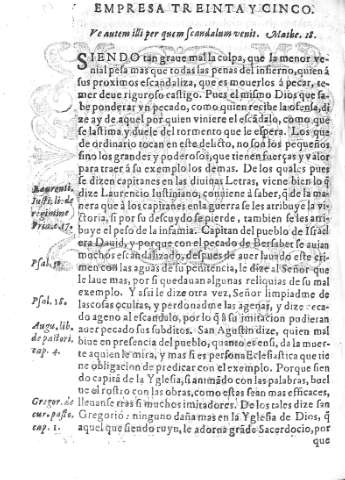 EMPRESA TREINTA Y CINCO.
Ve autem illi per quem scandalum venit. Mathe. 18.
SIENDO tan graue mal la culpa, que la menor ve-
nial pesa mas que todas las penas del infierno, quien á
sus proximos escandaliza, que es mouerlos á pecar, te-
mer deue riguroso castigo. Pues el mismo Dios que sa-
be ponderar vn pecado, como quien recibe la ofensa, di-
ze ay de aquel por quien viniere el escãdalo, como que
se lastima y duele del tormento que le espera. Los que
de ordinario tocan en este delicto, no son los pequeños
sino los grandes y poderosos, que tienen fuerças y valor
para traer á su exemplo los demas. De los quales pues
se dizen capitanes en las diuinas Letras, viene bien lo q̃
dize Laurencio Iustiniano, conuiene á saber, q̃ de la ma-
nera que á los capitanes en la guerra se les atribuye la vi-
ctoria, si por su descuydo se pierde, tambien se les atri-
buye el peso de la infamia. Capitan del pueblo de Israel
era Dauid, y porque con el pecado de Bersabet se auian
muchos escandalizado, despues de auer lauado este cri-
men con las aguas de su penitencia, le dize al Señor que
le laue mas, por si quedauan algunas reliquias de su mal
exemplo. Y assi le dize otra vez, Señor limpiadme de
las cosas ocultas, y perdonadme las agenas, y dize pecado
ageno al escandulo, por lo q̃ à su imitacion pudieran
auer pecado sus subditos. San Agustin dize, quien mal
biue en presencia del pueblo, quanto es en si, da la muer-
te a quien le mira, y mas si es persona Eclesiastica que tie-
ne obligacion de predicar con el exemplo. Porque sien
do capitã de la Yglesia, si animãdo con las palabras, buel
ue el rostro con las obras, como estas sean mas efficaces,
lleuanse tras si muchos imitadores. De los tales dize san
Gregorio: ninguno daña mas en la Yglesia de Dios, q̃
aquel que siendo ruyn, le adorna grado Sacerdocio, por
que
Laurenti.
Iusti. li. de
regimine
Prin. c. 17.
Psal. 50.
Psal. 18.
Augu. lib.
de pastori.
cap. 4.
Gregor. de
cur. pasto.
cap. 1.